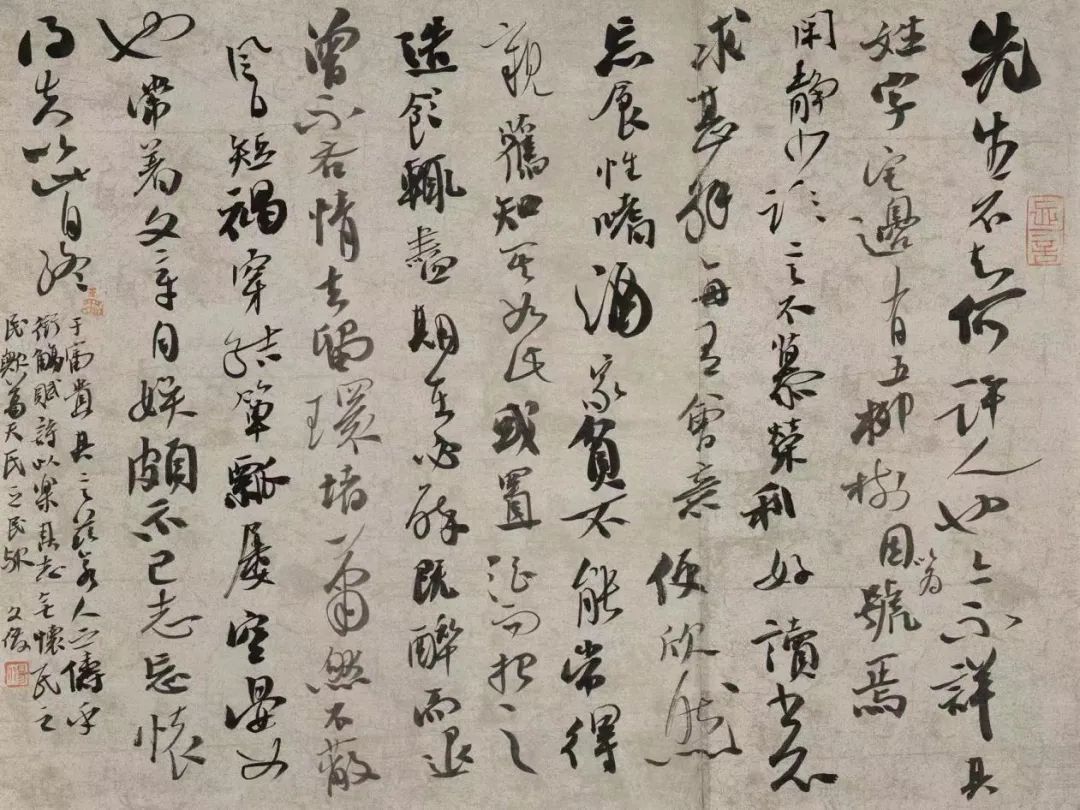 先生不知何許人也亦不詳其
姓字宅邊有五柳樹因以為號焉
閑靜少言不慕榮利好讀書不
求甚解每有會意便欣然
忘食性嗜酒家貧不能常得
親舊知其如此或置酒而招之
造飲輒盡期在必醉既醉而退
曾不吝情去留環堵蕭然不蔽
風日短褐穿結簞瓢屢空晏如
也常著文章自娛頗示己志忘懷
得失以此自終
于富貴其言茲若人之儔乎
銜觴賦詩以樂其志無懷氏之
民歟葛天氏之民歟